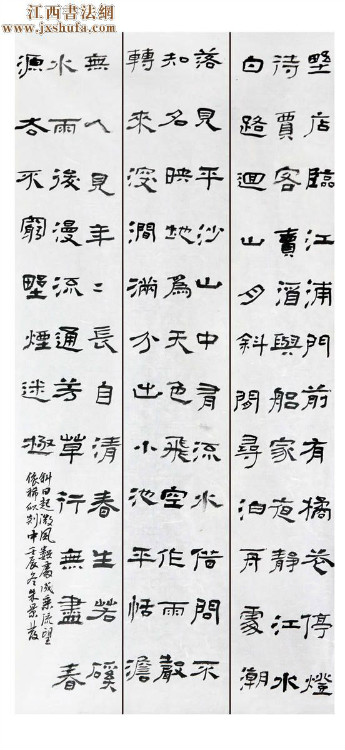 江西書法網
www.jxshufa.com
野店臨江浦門前有橘花停燈
待賈客賣酒與船家夜靜江水
白路迴山月斜閒尋泊舟處潮
落見平沙山中有流水借問不
知名映地為天色飛空作雨聲
轉來深澗滿分出小池平恬澹
無人見年〻長自清春生若磎
水雨後漫流通芳草行無盡春
源去不窮野煙迷極
斜日起微風數處成乘流望
依稀似剡中壬辰冬朱景發